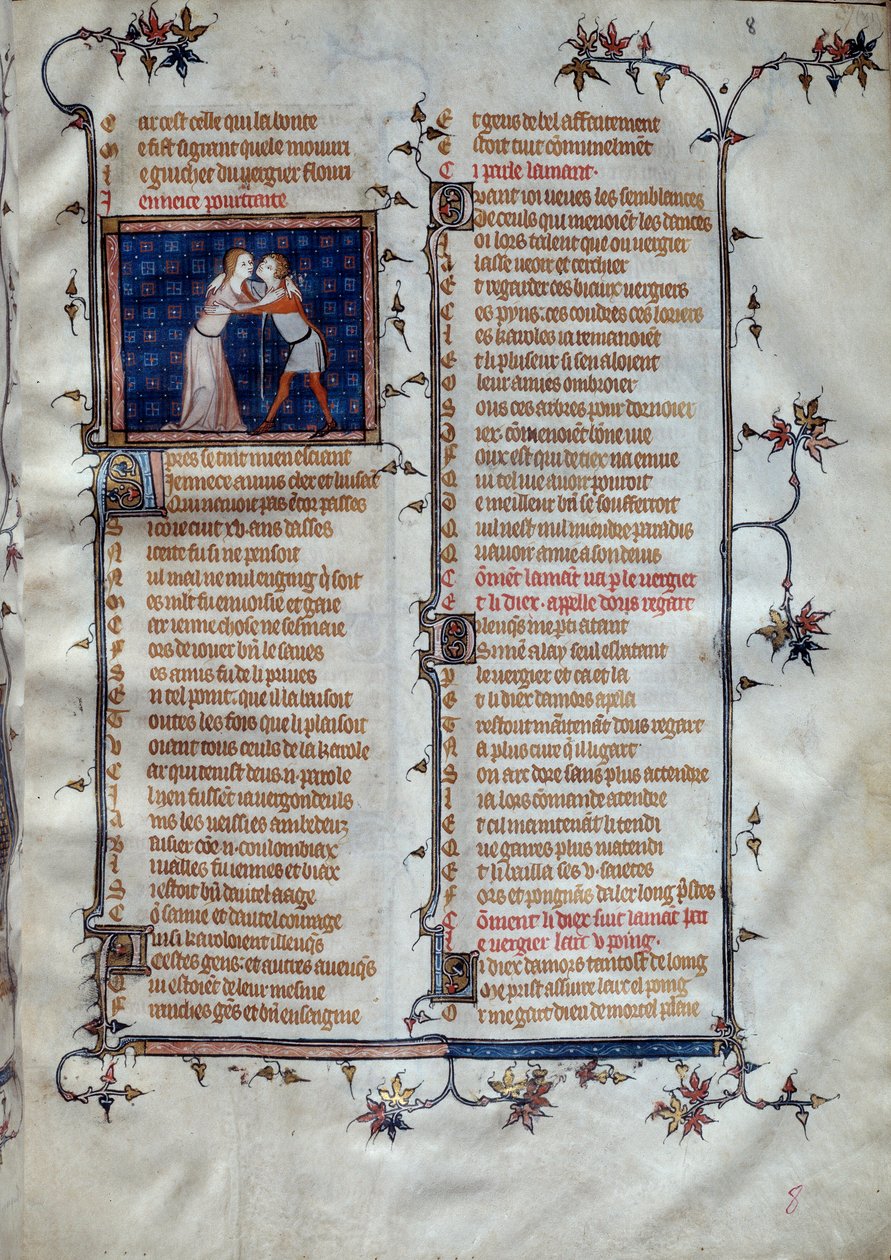 8
C ar cest celle qui la bonte
M e fist si grant quele mouuri
L e guichet du vergier flouri
I enneice pourtraite
A pres se tint mien esciant
I ennece au vis cler et luisant
Q ui nauoit pas encor passes
S i con ie cuit xv. ans dasses
N icete fu si ne pensoit
N ul mal ne nul enging q̃ soit
M es mlt fu enuoisie et gaie
C ar ienne chose ne sesmaie
F ors de iouer bñ le saues
S es amis fu de li priues
E n tel point que il la baisoit
T outes les fois que li plaisoit
V oiant tous ceuls de la karole
C ar qui tenist deus .n. parole
I l nen fussẽt ia vergondeuls
A ins les veissies ambedeuz
B aisier cõe .n. coulombiax
L i vallés fu iennes et biax
S i estoit bñ dautel aage
C õ samie et dautel courage
A insi karoloient illeuq̃s
C estes gens et autres aueuq̃s
Q ui estoient de leur mesnie
F ranches gẽs et bñ enseignie
E t gens de bel affaitement
E stoit tuit cõmunelment
C i parle lamant.
Q uant ioi veues les semblances
D e ceuls qui menoiẽt les dances
I oi lors talent que ou vergier
A lasse veoir et cerchier
E t regarder ces biaux vergiers
C es pyns ces coudres ces loriers
L es karoles ia remanoiẽt
E t li pluseur si sen aloient
O leur amies ombroier
S ous ces arbres pour dornoier
D iex cõ menoiẽt bõne vie
F oux est qui de tiex na enuie
Q ui tel vie auoir pourroit
D e meilleur bñ se soufferroit
Q uil nest nul miendre paradis
Q u auoir amie a son deuis
C õmẽt lamãt va p̱ le vergier
E t li diex. appelle dous regart
D illeuq̃s me parti atant
S i mẽ alay seul esbatant
P ar le vergier et ca et la
E t li diex damors apla
T restout maĩtenãt dous regart
N a plus cure q̃ il li gart
S on arc dore sans plus actendre
L i a lors cõmande a tendre
E t cil maintenãt li tendi
Q ue gaires plus natendi
E t li bailla ses v. saietes
F ors et poignãs daler long p̃stes
C õment li diex suit lamãt par
L e vergier larc v poing.
L i diex damors tantost de loing
M e prist assiure larc el poing
O r me gart dieu de mortel plaie
8